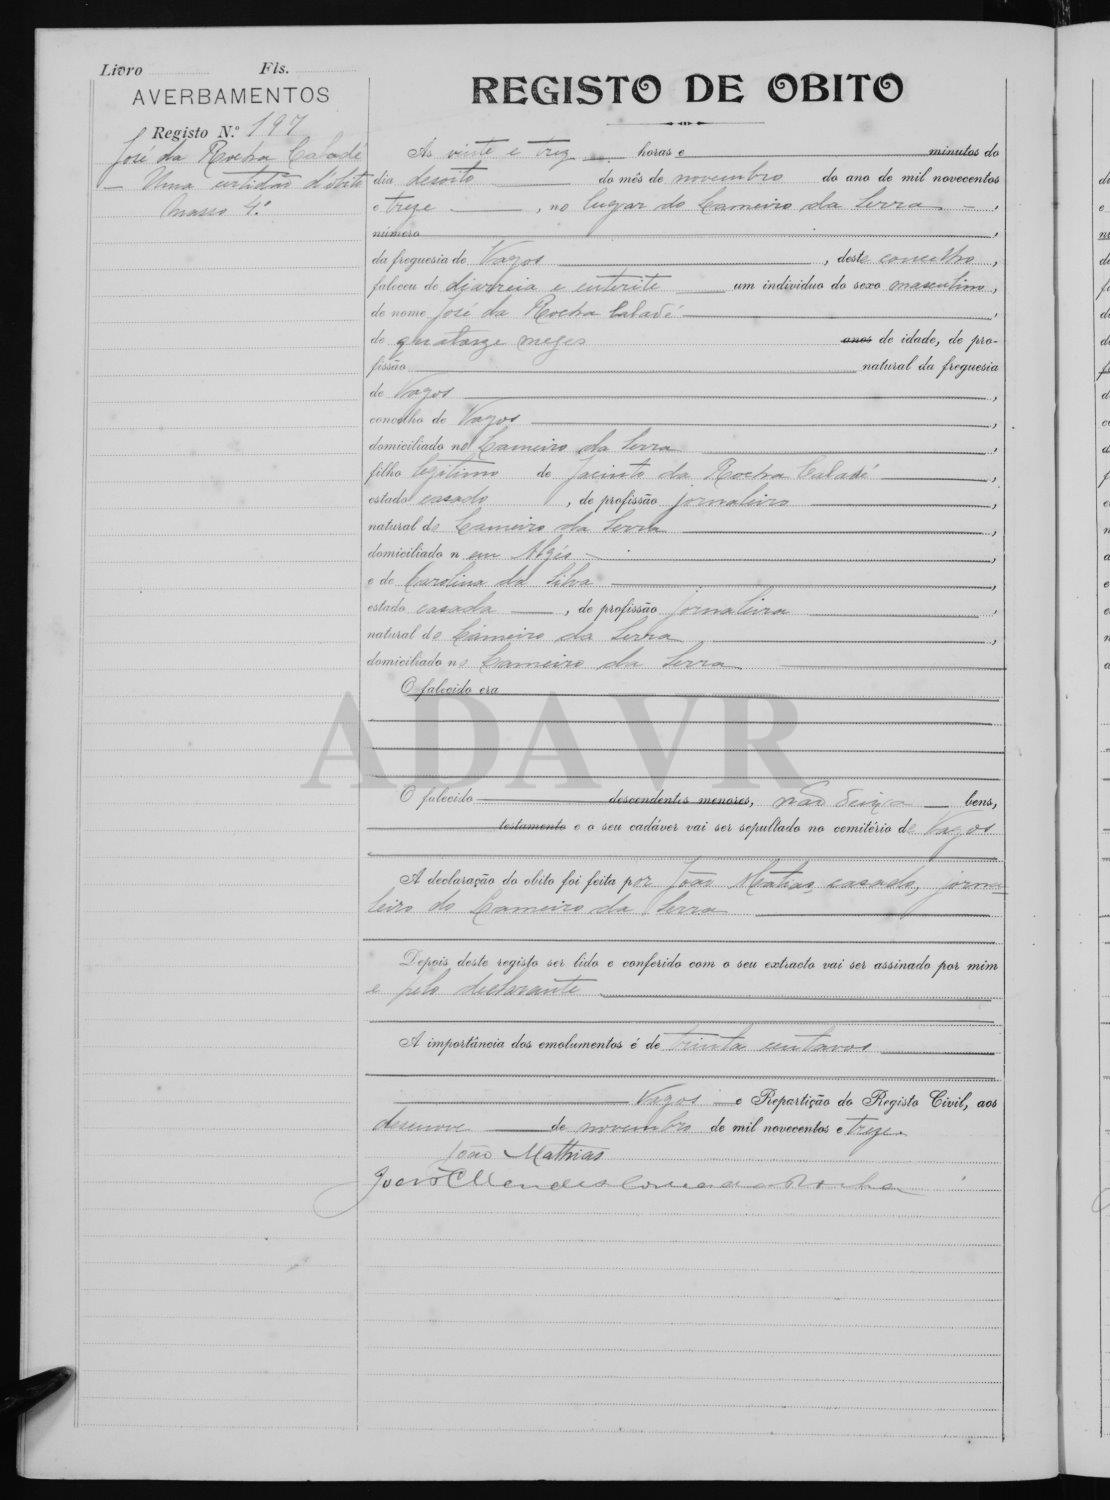 Livro Fls.
AVERBAMENTOS
Registo N.º 197
José da Rocha Caladé
— Uma certidão d'obito
Masso 4.º
REGISTO DE OBITO
Ás vinte e trez horas e minutos do
dia desoito do mês de novembro do ano de mil novecentos
e treze, no lugar do Cameiro da Serra,
número
da freguesia de Vagos, deste concelho,
faleceu de diarreia e enterite um individuo do sexo masculino,
de nome José da Rocha Caladé,
de quatorze mezes anos de idade, de pro-
fissão natural da freguesia
de Vagos,
concelho de Vagos,
domiciliado no Cameiro da Serra,
filho legitimo de Jacinto da Rocha Caladé,
estado casado, de profissão jornaleiro,
natural do Cameiro da Serra,
domiciliado n em Algés,
e de Carolina da Silva,
estado casada, de profissão jornaleira,
natural do Cameiro da Serra,
domiciliado no Cameiro da Serra
O falecido era
ADAVR
O falecido descendentes menores, não deixa bens,
testamento e o seu cadáver vai ser sepultado no cemitério de Vagos
A declaração do obito foi feita por João Matias, casado, jorna-
leiro do Cameiro da Serra
Depois deste registo ser lido e conferido com o seu extracto vai ser assinado por mim
e pelo declarante
A importância dos emolumentos é de trinta centavos
Vagos e Repartição do Registo Civil, aos
desenove de novembro de mil novecentos e treze.
João Mathias
João Mendes Correia da Rocha